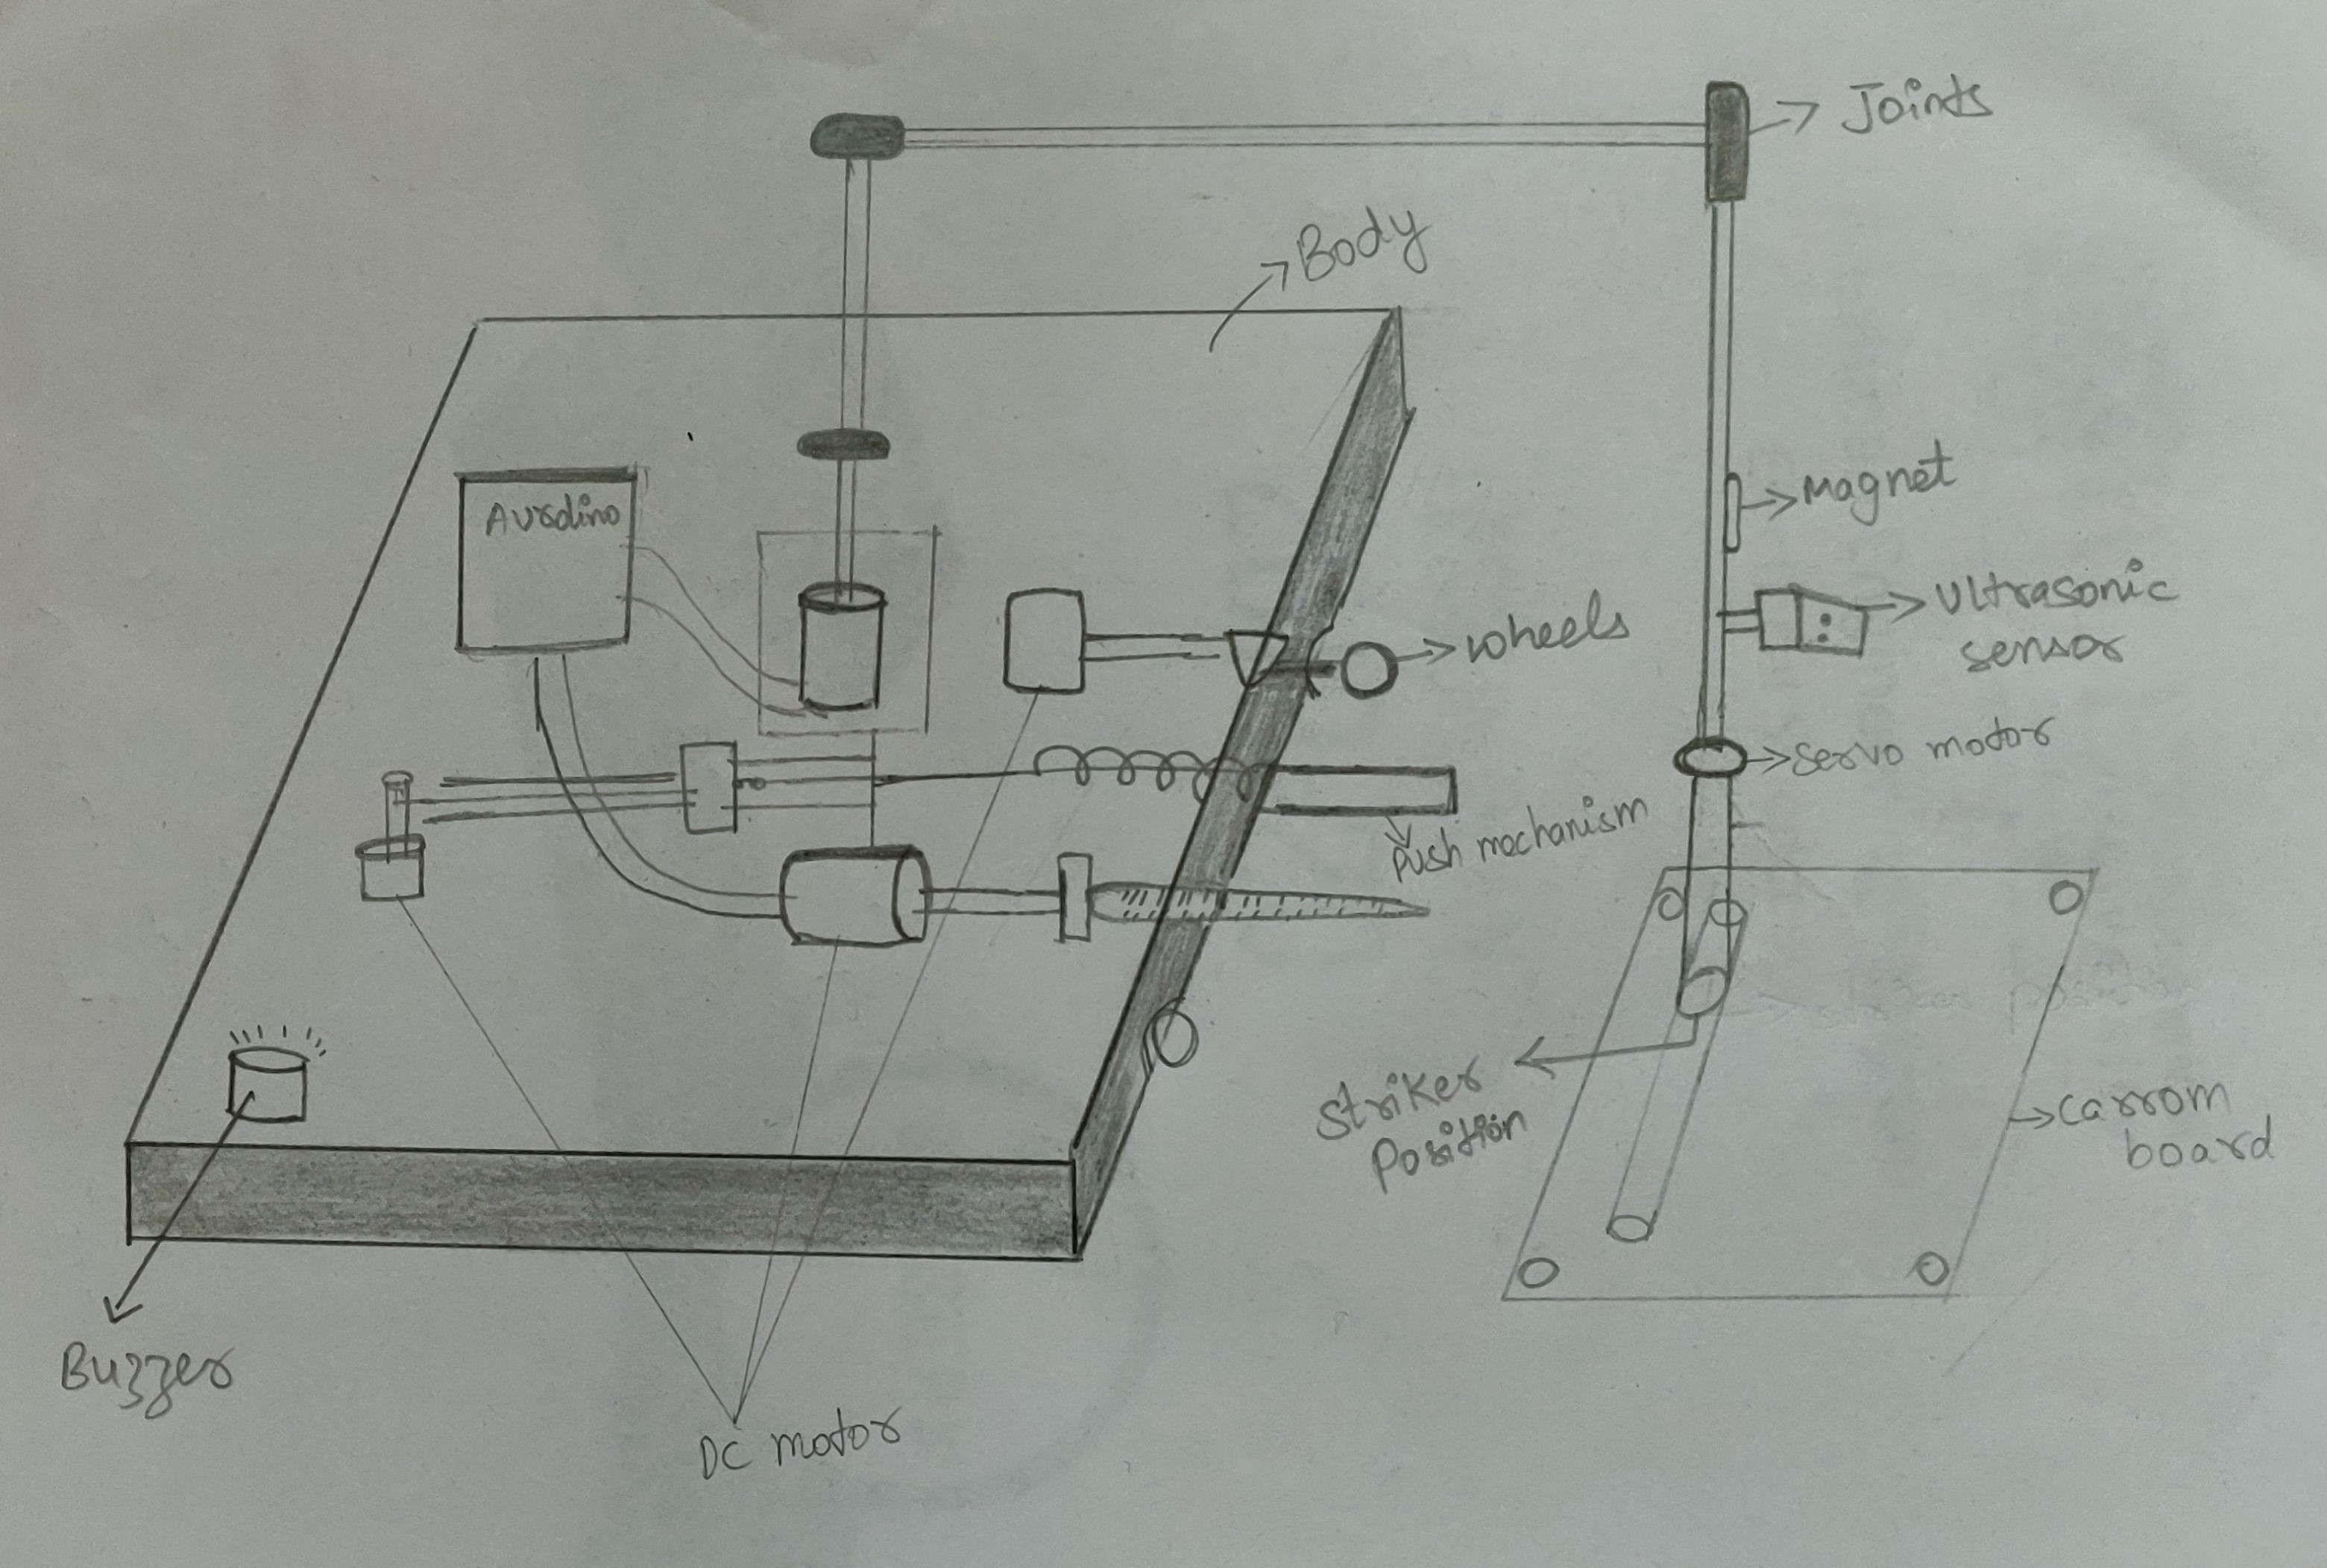 Joints
Body
Magnet
Aurdino
Ultrasonic
sensor
wheels
servo motor
Push mechanism
Striker
Position
carrom
board
Buzzer
DC motor